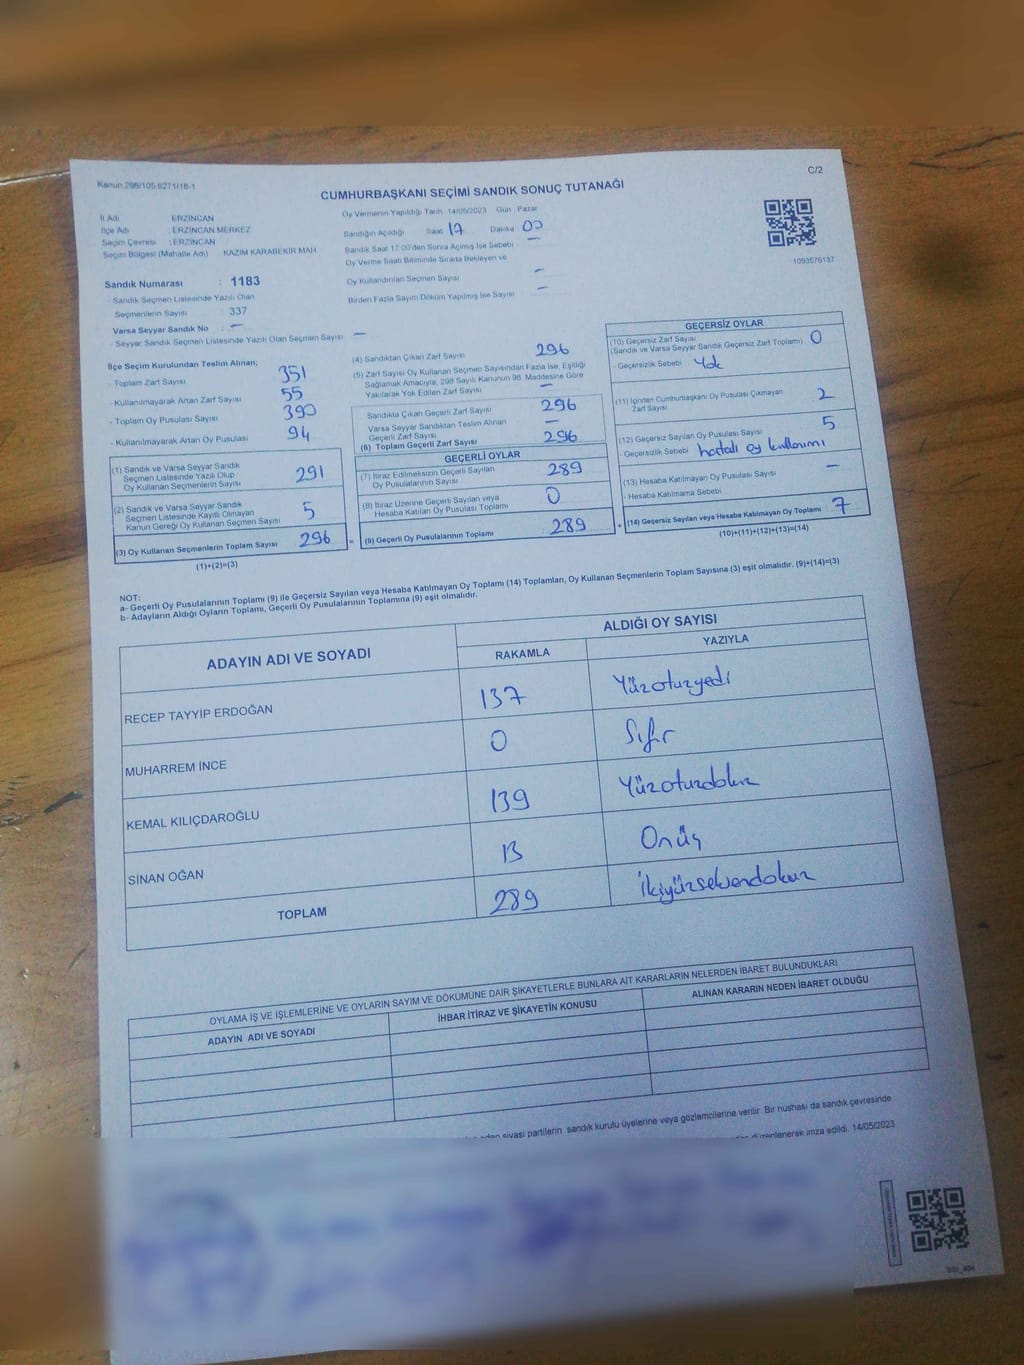 Kanun 298/105 6271/18-1
C/2
CUMHURBAŞKANI SEÇİMİ SANDIK SONUÇ TUTANAĞI
İl Adı ERZİNCAN
İlçe Adı ERZİNCAN MERKEZ
Seçim Çevresi : ERZİNCAN
Seçim Bölgesi (Mahalle Adı) KAZIM KARABEKİR MAH.
Oy Vermenin Yapıldığı Tarih 14/05/2023 Gün : Pazar
Sandığın Açıldığı Saat 17 Dakika 00
Sandık Saat 17:00'den Sonra Açımış İse Sebebi —
Oy Verme Saati Bitiminde Sırada Bekleyen ve
Oy Kullandırılan Seçmen Sayısı —
Birden Fazla Sayım Döküm Yapılmış İse Sayısı —
1093576137
Sandık Numarası : 1183
- Sandık Seçmen Listesinde Yazılı Olan
Seçmenlerin Sayısı 337
Varsa Seyyar Sandık No : —
- Seyyar Sandık Seçmen Listesinde Yazılı Olan Seçmen Sayısı —
İlçe Seçim Kurulundan Teslim Alınan;
- Toplam Zarf Sayısı 351
- Kullanılmayarak Artan Zarf Sayısı 55
- Toplam Oy Pusulası Sayısı 390
- Kullanılmayarak Artan Oy Pusulası 94
(1) Sandık ve Varsa Seyyar Sandık
Seçmen Listesinde Yazılı Olup
Oy Kullanan Seçmenlerin Sayısı 291
(2) Sandık ve Varsa Seyyar Sandık
Seçmen Listesinde Kayıtlı Olmayan
Kanun Gereği Oy Kullanan Seçmen Sayısı 5
(3) Oy Kullanan Seçmenlerin Toplam Sayısı 296
(1)+(2)=(3)
(4) Sandıktan Çıkan Zarf Sayısı 296
(5) Zarf Sayısı Oy Kullanan Seçmen Sayısından Fazla İse, Eşitliği
Sağlamak Amacıyla, 298 Sayılı Kanunun 98. Maddesine Göre
Yakılarak Yok Edilen Zarf Sayısı —
Sandıkta Çıkan Geçerli Zarf Sayısı 296
Varsa Seyyar Sandıktan Teslim Alınan
Geçerli Zarf Sayısı —
(6) Toplam Geçerli Zarf Sayısı 296
GEÇERLİ OYLAR
(7) İtiraz Edilmeksizin Geçerli Sayılan
Oy Pusulalarının Sayısı 289
(8) İtiraz Üzerine Geçerli Sayılan veya
Hesaba Katılan Oy Pusulası Toplamı 0
= (9) Geçerli Oy Pusulalarının Toplamı 289
GEÇERSİZ OYLAR
(10) Geçersiz Zarf Sayısı
(Sandık ve Varsa Seyyar Sandık Geçersiz Zarf Toplamı) 0
- Geçersizlik Sebebi Yok
(11) İçinden Cumhurbaşkanı Oy Pusulası Çıkmayan
Zarf Sayısı 2
(12) Geçersiz Sayılan Oy Pusulası Sayısı 5
- Geçersizlik Sebebi hatalı oy kullanımı
(13) Hesaba Katılmayan Oy Pusulası Sayısı —
- Hesaba Katılmama Sebebi
+ (14) Geçersiz Sayılan veya Hesaba Katılmayan Oy Toplamı 7
(10)+(11)+(12)+(13)=(14)
NOT:
a- Geçerli Oy Pusulalarının Toplamı (9) ile Geçersiz Sayılan veya Hesaba Katılmayan Oy Toplamı (14) Toplamları, Oy Kullanan Seçmenlerin Toplam Sayısına (3) eşit olmalıdır. (9)+(14)=(3)
b- Adayların Aldığı Oyların Toplamı, Geçerli Oy Pusulalarının Toplamına (9) eşit olmalıdır.
ADAYIN ADI VE SOYADI
ALDIĞI OY SAYISI
RAKAMLA YAZIYLA
RECEP TAYYİP ERDOĞAN 137 Yüzotuzyedi
MUHARREM İNCE 0 Sıfır
KEMAL KILIÇDAROĞLU 139 Yüzotuzdokuz
SİNAN OĞAN 13 Onüç
TOPLAM 289 İkiyüzseksendokuz
OYLAMA İŞ VE İŞLEMLERİNE VE OYLARIN SAYIM VE DÖKÜMÜNE DAİR ŞİKAYETLERLE BUNLARA AİT KARARLARIN NELERDEN İBARET BULUNDUKLARI
ADAYIN ADI VE SOYADI
İHBAR İTİRAZ VE ŞİKAYETİN KONUSU
ALINAN KARARIN NEDEN İBARET OLDUĞU
siyasi partilerin sandık kurulu üyelerine veya gözlemcilerine verilir. Bir nüshası da sandık çevresinde
düzenlenerek imza edildi. 14/05/2023